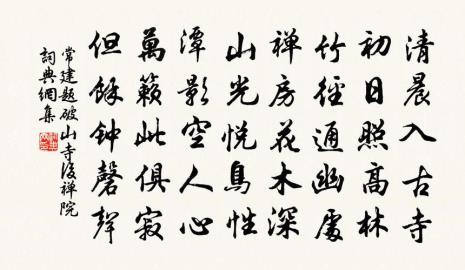 清晨入古寺
初日照高林
竹徑通幽處
禅房花木深
山光悦鳥性
潭影空人心
萬籁此俱寂
但餘钟磬聲
常建題破山寺後禅院
詞典網集